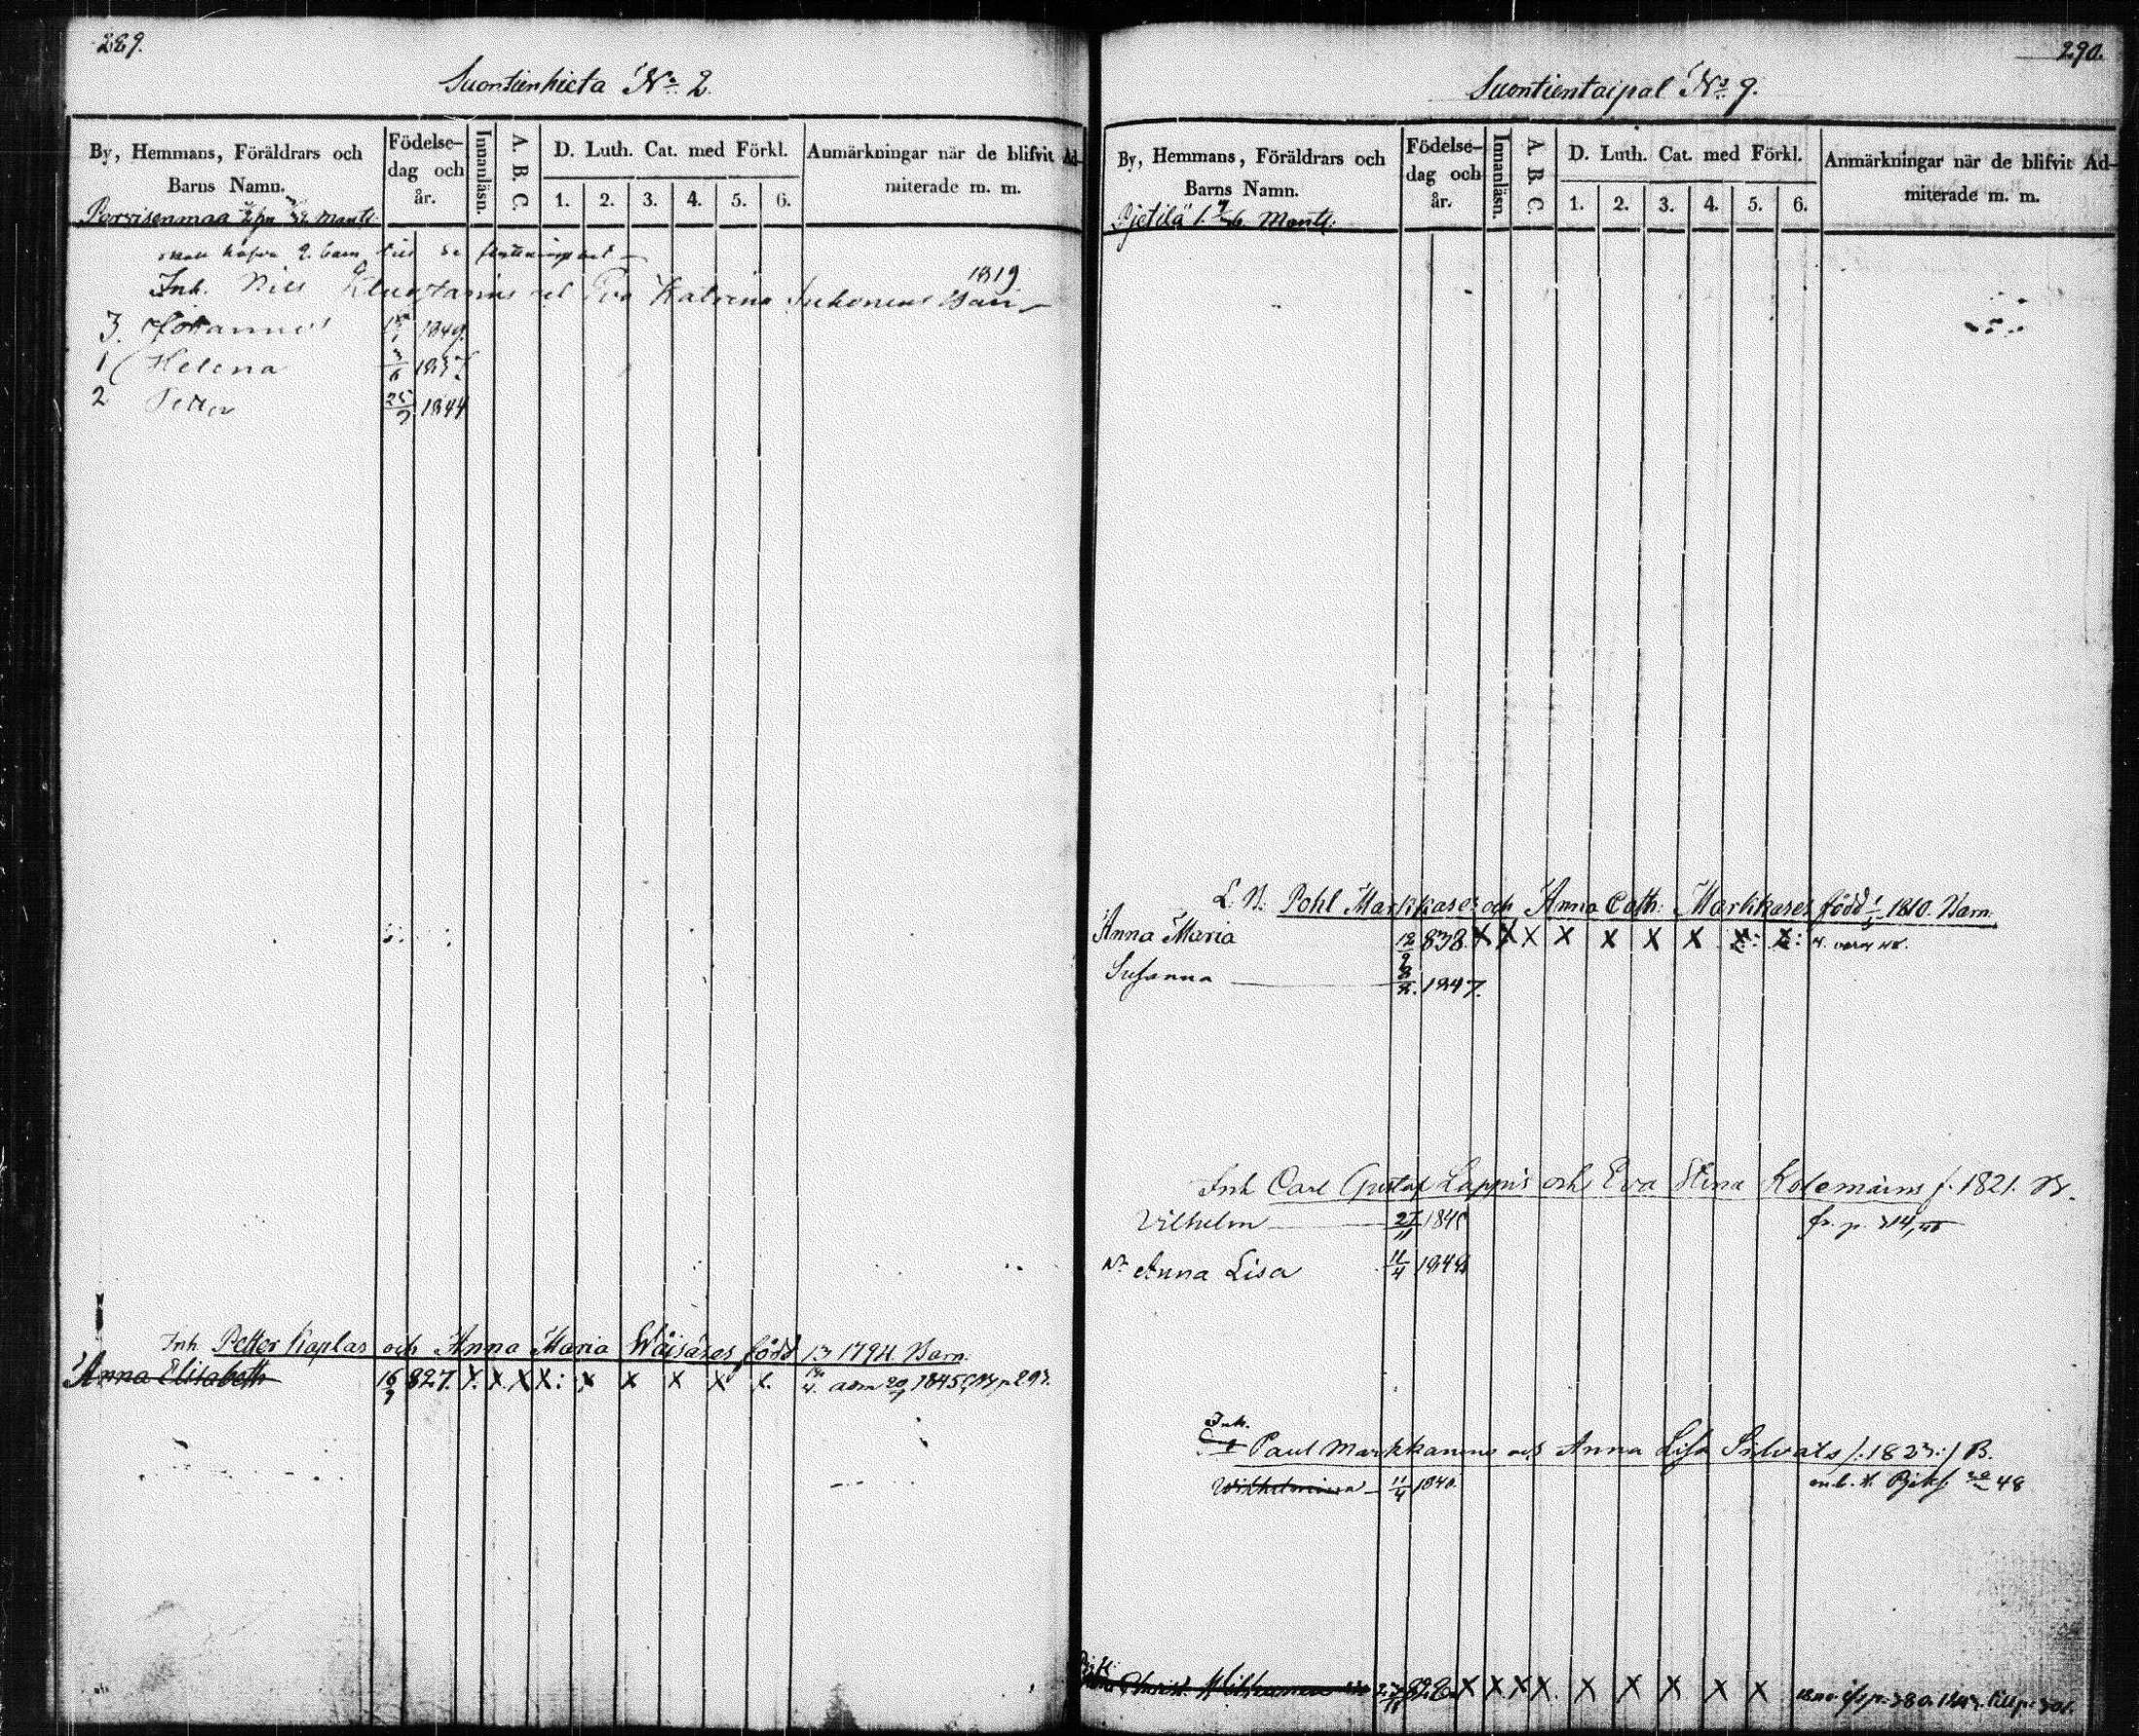 289.
Suontienhieta No 2.
By, Hemmans, Föräldrars och Barns Namn.
Födelse-dag och år.
Innanläsn.
A. B. C.
D. Luth. Cat. med Förkl.
1. 2. 3. 4. 5. 6.
Anmärkningar när de blifvit Admiterade m. m.
Parvisenmaa Mantl.
skall hafva 2. barn
Inh. Nils och Eva Katrina Suhonens 1819 Barn
3. Johannes 1849.
1 Helena 1837
2 Petter 25/9 1844
Inh. Petter Kaplas och Anna Maria Wäisäses född 1794. Barn.
Anna Elisabeth 16/9 827. X. X X X: X X X X X. adm 1845
290.
Suontientaipal No 9.
By, Hemmans, Föräldrars och Barns Namn.
Födelse-dag och år.
Innanläsn.
A. B. C.
D. Luth. Cat. med Förkl.
1. 2. 3. 4. 5. 6.
Anmärkningar när de blifvit Admiterade m. m.
Pjetilä Mantl.
L. N. Pohl Markkases och Anna Cath: Markkases född 1810. Barn.
Anna Maria 12/9 838. X X X X X X X X: X:
Susanna 1847.
Inh Carl Gustaf Lappis och Eva Stina Kolemains f. 1821. B.
Vilhelm 27/11 1845 fr. p. 314,
Anna Lisa 11/4 1848
Inh.
Paul Markkanens och Anna Lisa Salvats /:1823:/ B.
Wilhelmina 11/4 1840. 48
Christ. 828 X X X X. X X X X X